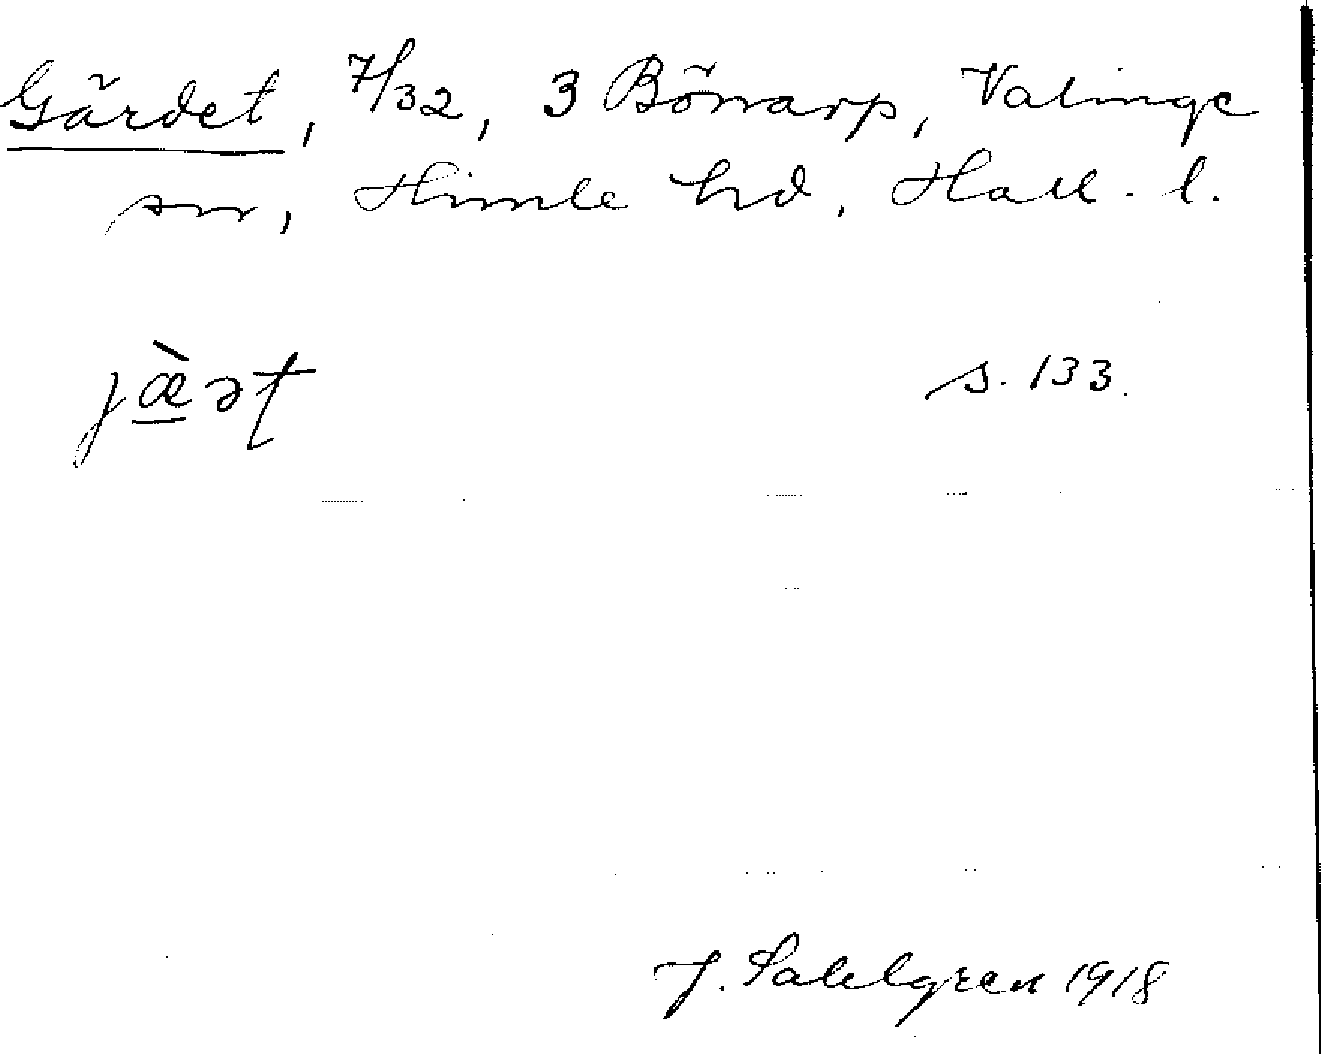 Gärdet, 7/32, 3 Börrarp, Valinge
sn, Himle hd, Hall. l.
jæ̀ət s. 133.
J. Sahlgren 1918